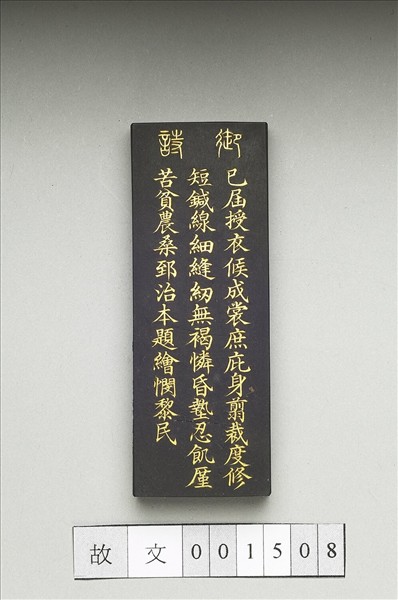 御詩
已屆授衣候成裳庶庇身翦裁度修
短鍼線細縫紉無褐憐昏墊忍飢廑
苦貧農桑郅治本題繪憫黎民
故文001508